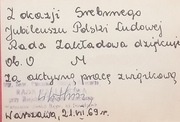 Z okazji Srebrnego
Jubileuszu Polski Ludowej
Rada Zakładowa dziękuje
Ob. O M
za aktywną pracę związkową
Warszawa, 21.VII 69 r.